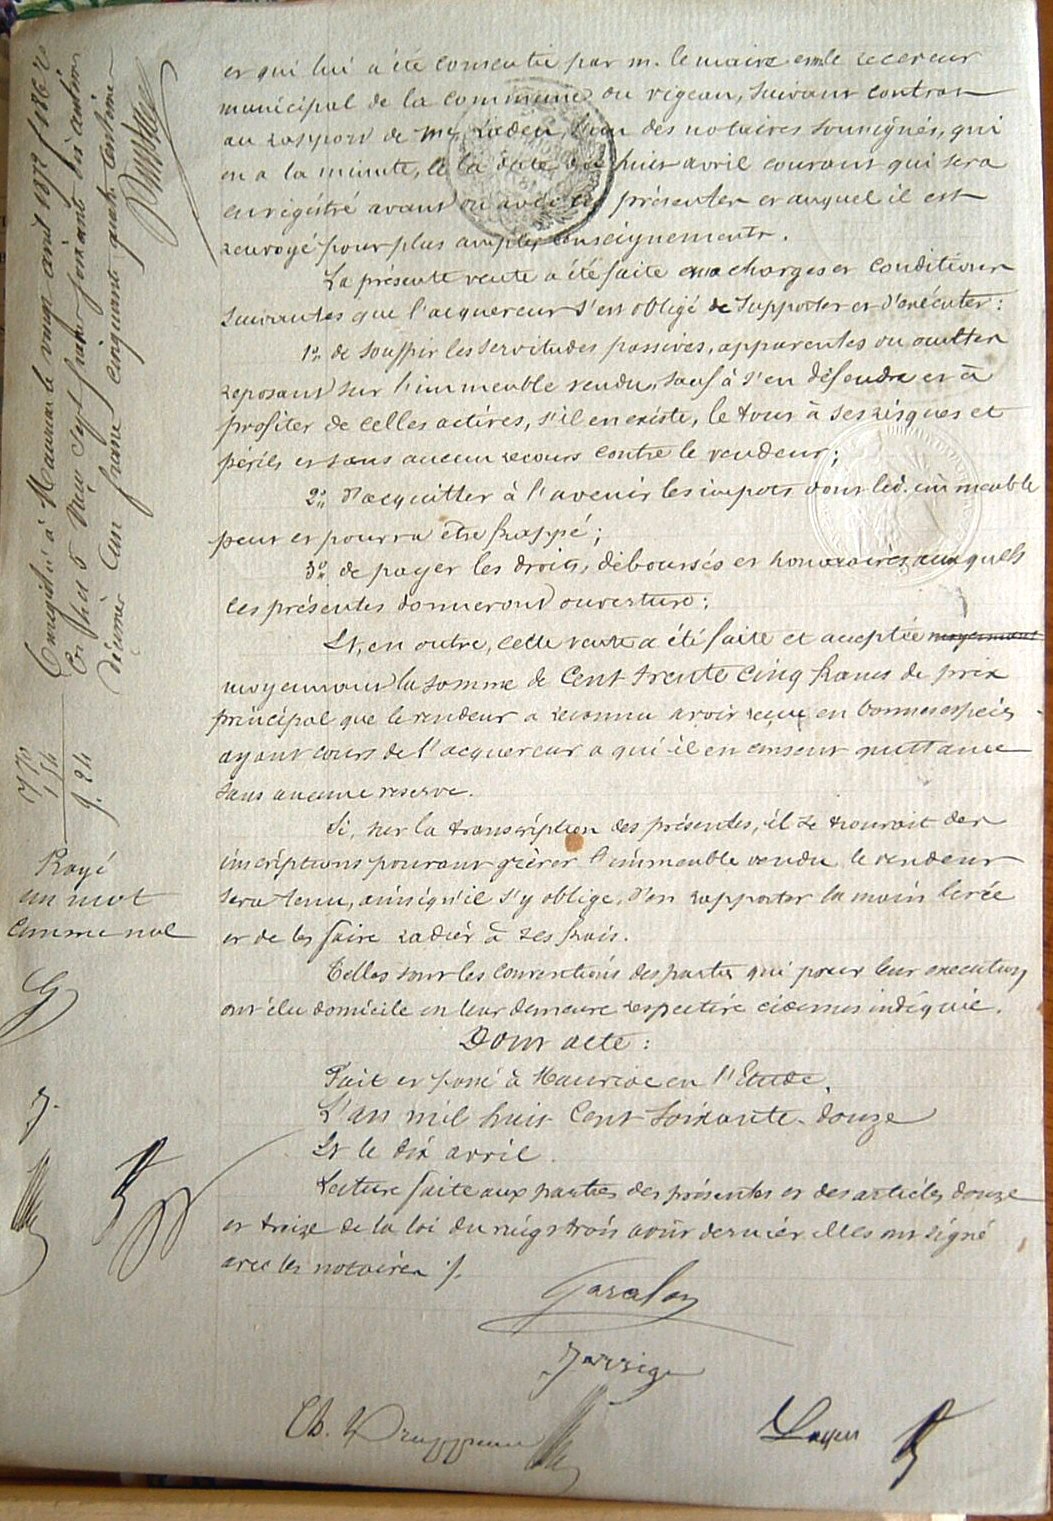 et qui lui a été consentie par m. le maire et le receveur
municipal de la commune du vigean, suivant contrat
au rapport de Me, l'un des notaires soussignés, qui
en a la minute, à la date du huit avril courant qui sera
enrégistré avant ou avec les présentes et auquel il est
renvoyé pour plus amples renseignements.
La présente vente a été faite aux charges et conditions
suivantes que l'acquereur s'est obligé de supporter et d'exécuter :
1o, de souffrir les servitudes passives, apparentes ou occultes
reposant sur l'immeuble vendu, sauf à s'en défendre et à
profiter de celles actives, s'il en existe, le tout à ses risques et
périls et sans aucun recours contre le vendeur ;
2o, d'acquitter à l'avenir les impots dont led. immeuble
peut et pourra être frappé ;
3o, de payer les droits, déboursés et honoraires auxquels
les présentes donneront ouverture ;
Et, en outre, cette vente a été faite et acceptée moyennant
moyennant la somme de Cent trente cinq francs de prix
principal que le vendeur a reconnu avoir reçue en bonnes espèces
ayant cours de l'acquereur a qui il en consent quittance
sans aucune reserve.
Si, sur la transcription des présentes, il se trouvait des
inscriptions pouvant grèver l'immeuble vendu le vendeur
sera tenu, ainsi qu'il s'y oblige, d'en rapporter la main levée
et de les faire radier à ses frais.
Telles sont les conventions des parties qui pour leur execution,
ont élu domicile en leur demeure respective cidessus indiquée.
Dont acte :
Fait et passé à Mauriac en l'Etude,
L'an mil huit Cent Soixante-douze
Et le dix avril.
Lecture faite aux parties des présentes et des articles douze
et treize de la loi du vingt trois août dernier elles ont signé
avec les notaires ./.
Jarrige
Enregistré à Mauriac le vingt avril 1872 fo 186 Ro
Ce 5 Reçu sept francs soixante dix centimes
Décimes Un franc cinquante quatre centimes
7 70
1 54
9. 24
Rayé
un mot
comme nul